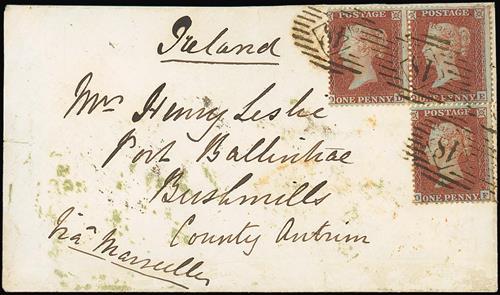 POSTAGE POSTAGE
Ireland
ONE PENNY ONE PENNY
Mrs Henry Leslie
POSTAGE
18
Port Ballintrae
ONE PENNY
Bushmills
County Antrim
Via Marseilles